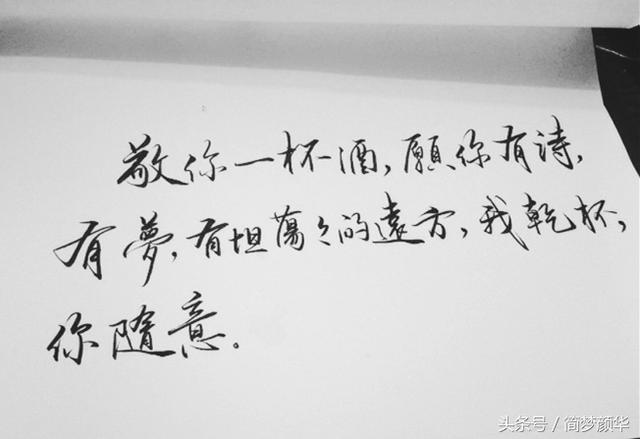 敬你一杯酒,願你有詩,
有夢,有坦蕩々的遠方,我乾杯,
你隨意。
头条号 / 简梦颜华